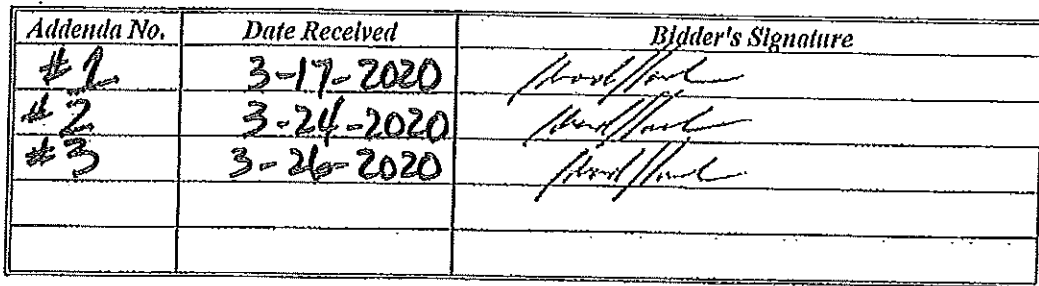 Addenda No. Date Received Bidder's Signature
#1 3-17-2020
#2 3-24-2020
#3 3-26-2020